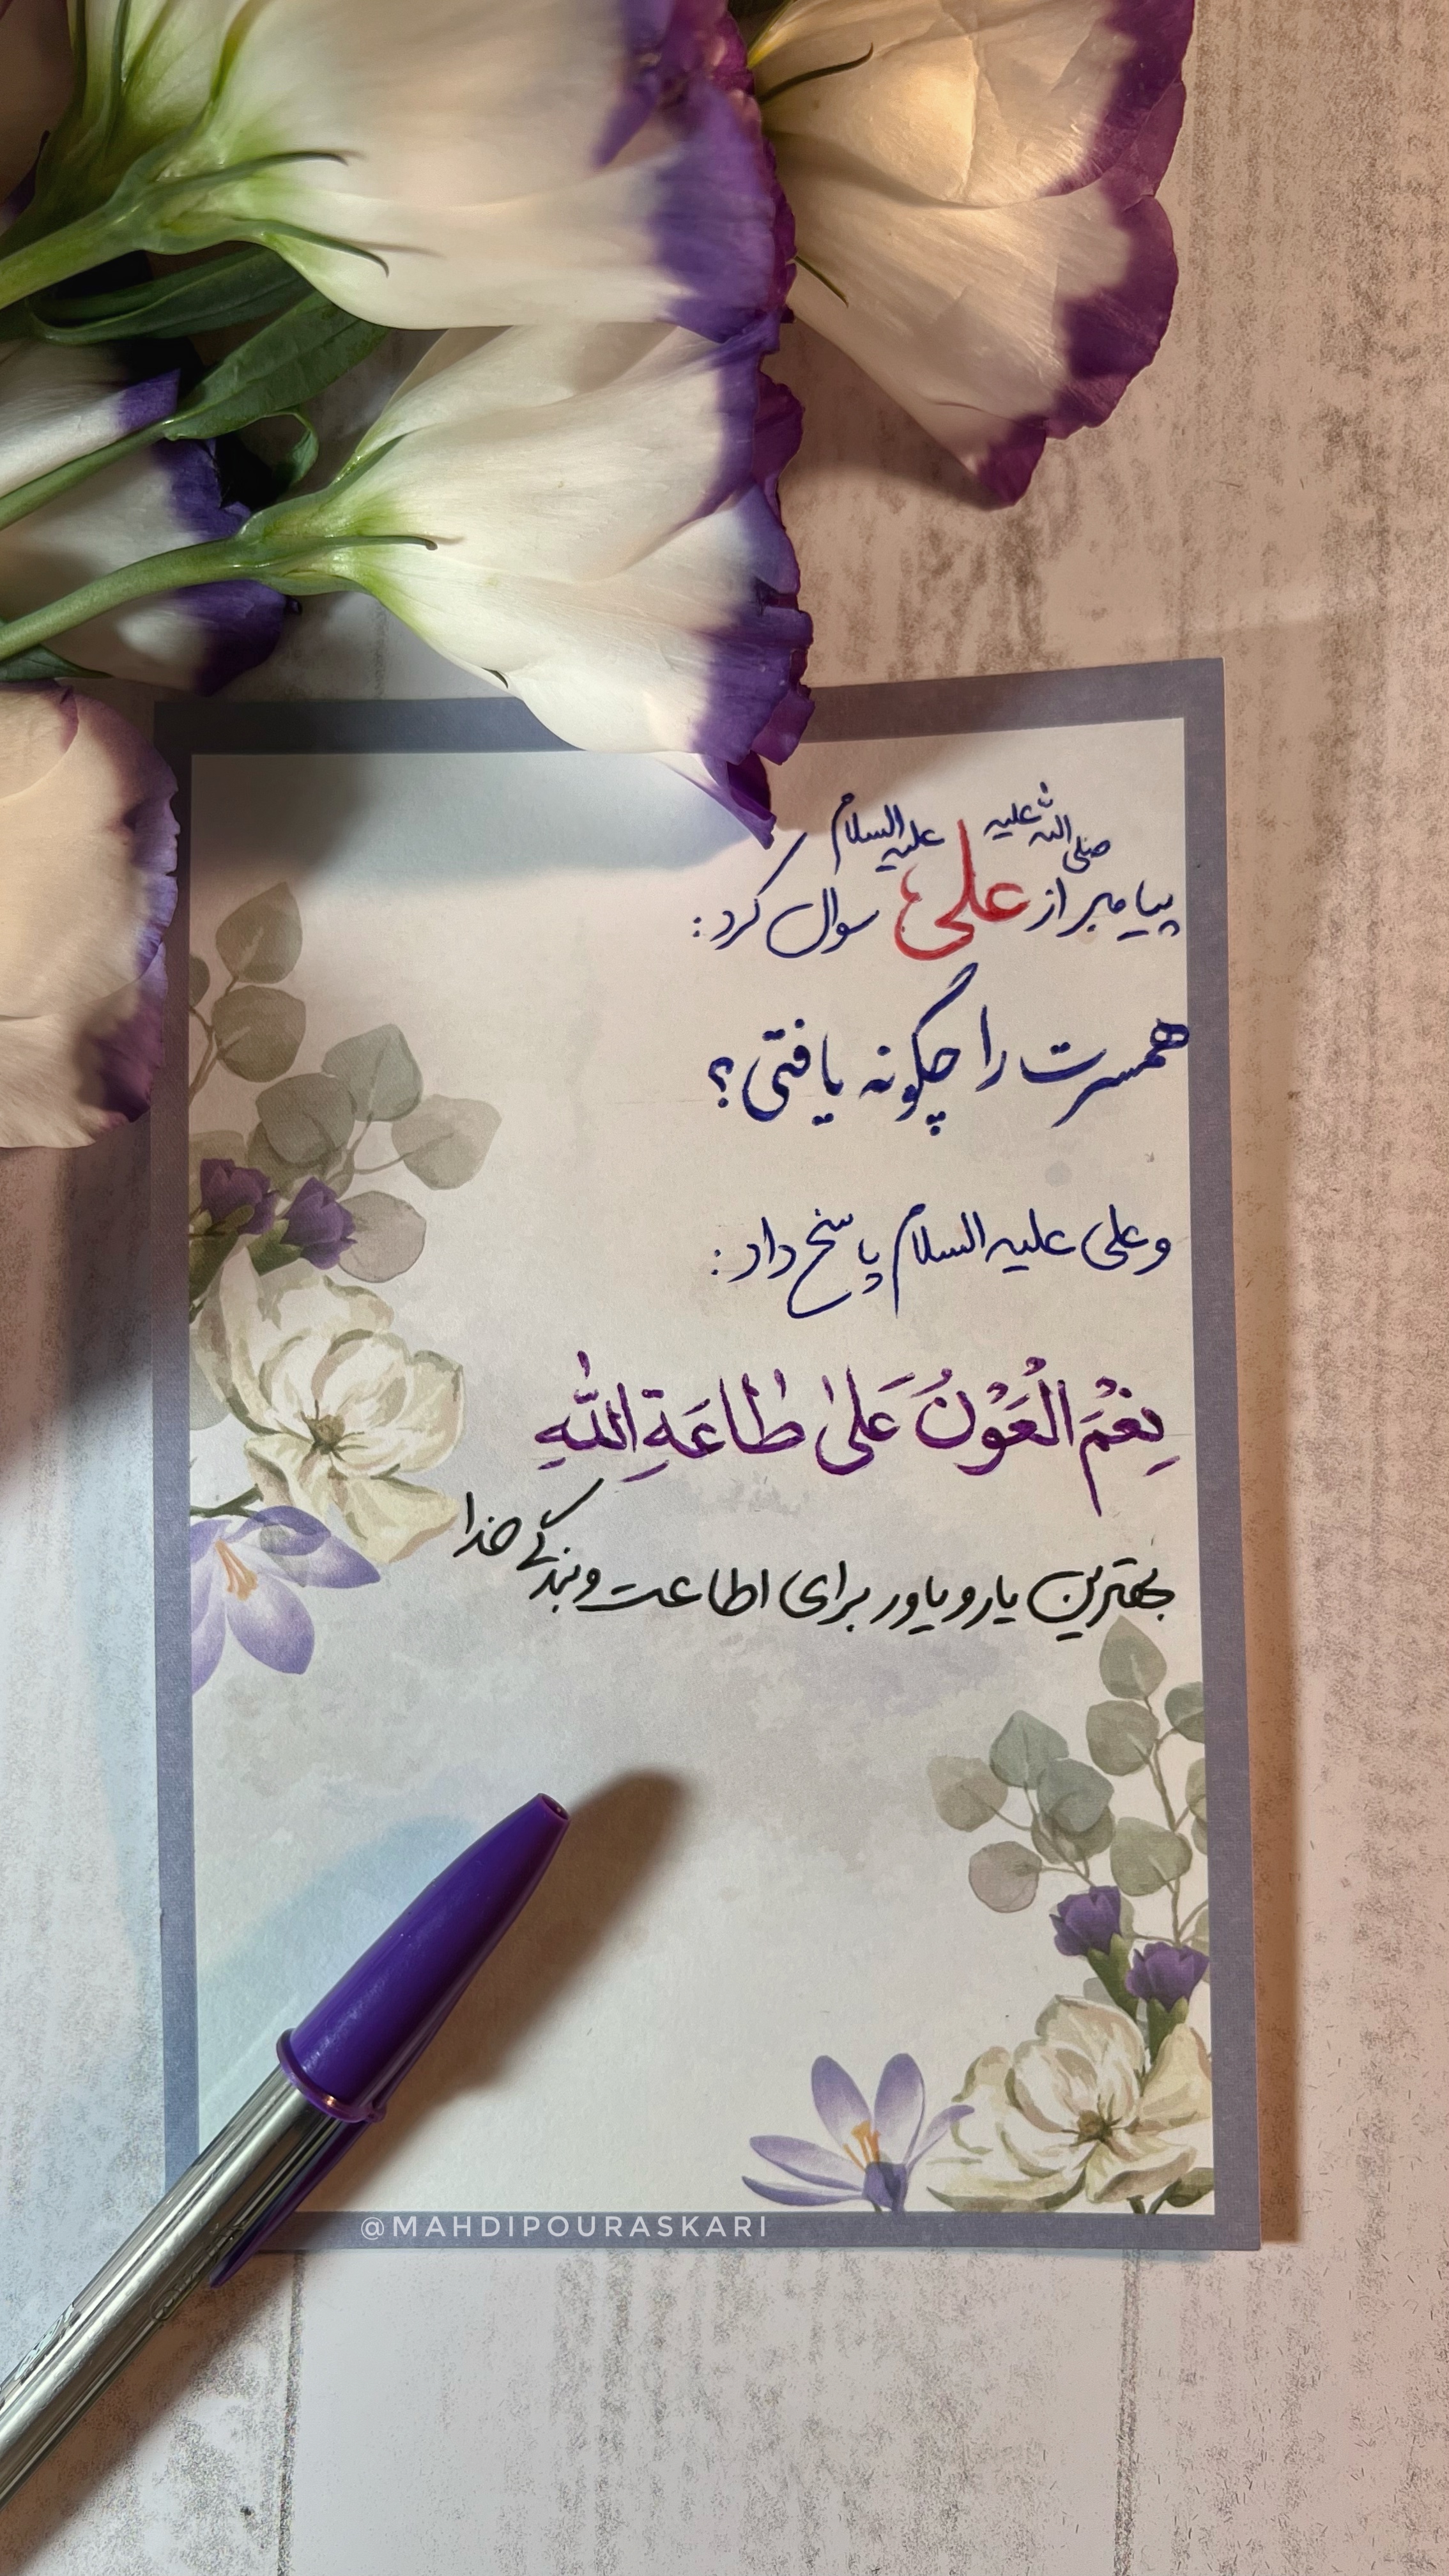 پیامبر صلی الله علیه از علی علیه السلام سوال کرد:
همسرت را چگونه یافتی؟
و علی علیه السلام پاسخ داد:
نِعْمَ الْعَوْنُ عَلیٰ طاعَةِ اللّٰهِ
بهترین یار و یاور برای اطاعت و بندگی خدا
@MAHDIPOURASKARI